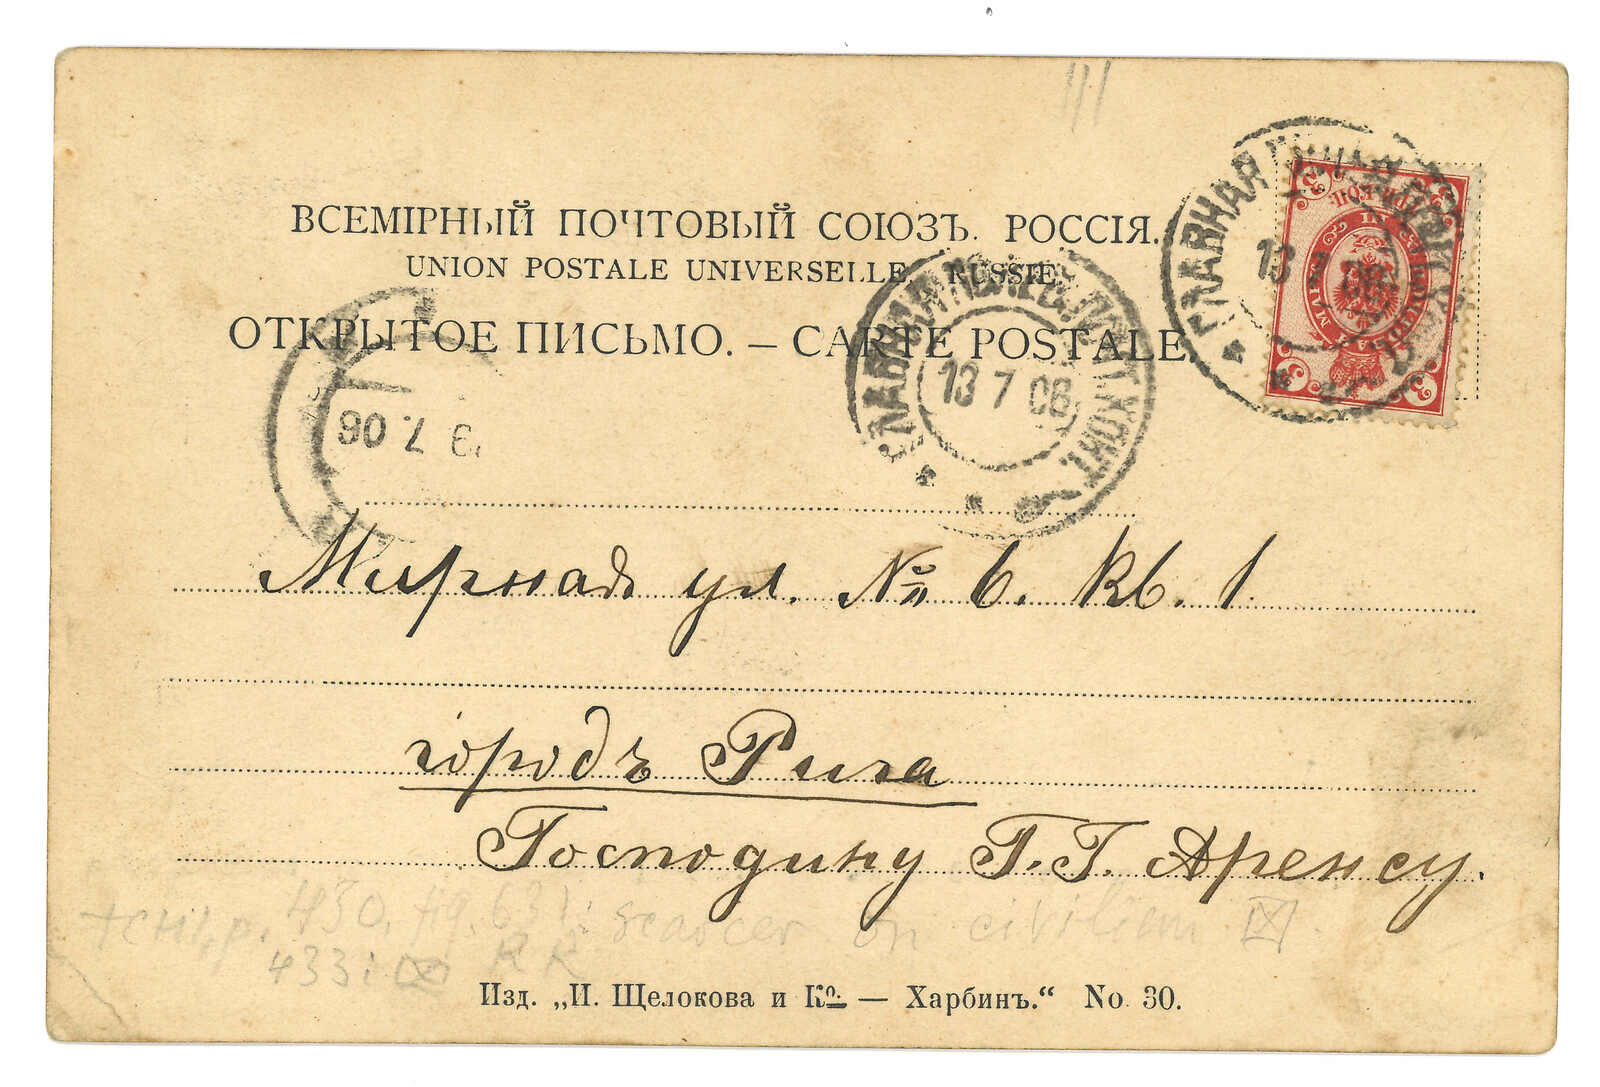 ВСЕМІРНЫЙ ПОЧТОВЫЙ СОЮЗЪ. РОССІЯ.
UNION POSTALE UNIVERSELLE. RUSSIE
ОТКРЫТОЕ ПИСЬМО. — CARTE POSTALE.
ГЛАВНАЯ
13
ГЛАВНАЯ
13 7 06
9 7 06
Мирная ул. № 6. кв. 1.
городъ Рига
Господину Г. Г. Аренсу.
p. 430, fig. 631: scarcer on civilian
433: RR
Изд. „И. Щелокова и Ко. — Харбинъ.“ No 30.